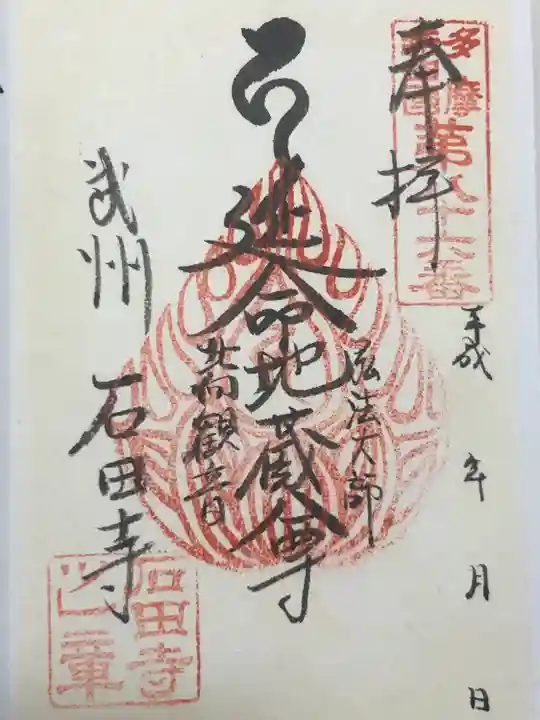 奉拝
多摩
八十八ヶ所
第八十六番
平成 年 月 日
弘法大師
延命地蔵尊
北向観音
武州 石田寺
石田寺
之章